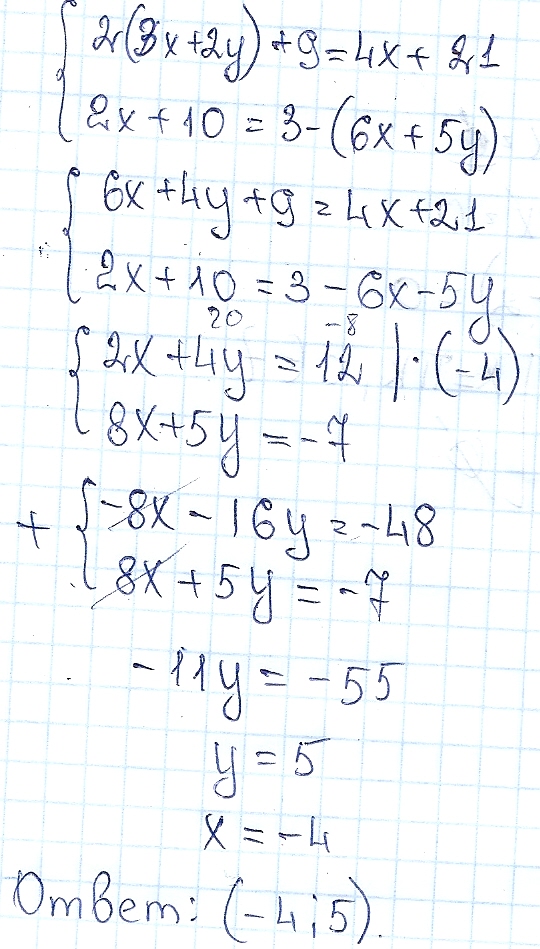 { 2(3x+2y)+9=4x+21
2x+10=3-(6x+5y)
{ 6x+4y+9=4x+21
2x+10=3-6x-5y
20 -8
{ 2x+4y=12 |·(-4)
8x+5y=-7
+ { -8x-16y=-48
8x+5y=-7
-11y=-55
y=5
x=-4
Ответ: (-4;5).